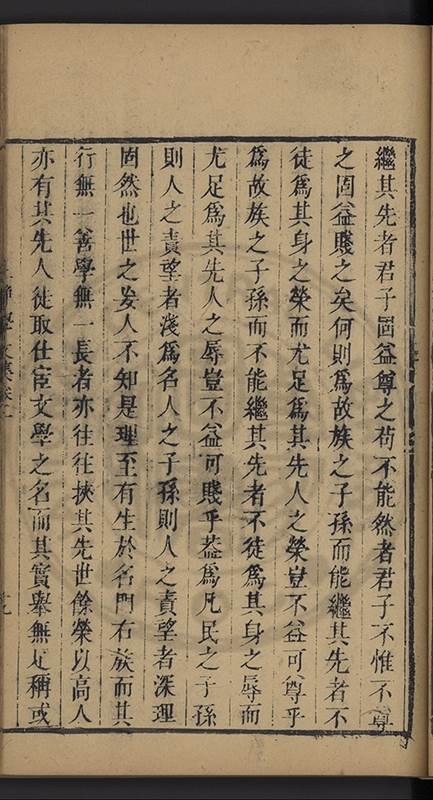 繼其先者君子固益尊之苟不能然者君子不惟不尊
之固益賤之矣何則爲故族之子孫而能繼其先者不
徒爲其身之榮而尤足爲其先人之榮豈不益可尊乎
爲故族之子孫而不能繼其先者不徒爲其身之辱而
尤足爲其先人之辱豈不益可賤乎葢爲凡民之子孫
則人之責望者淺爲名人之子孫則人之責望者深理
固然也世之妄人不知是理至有生於名門右族而其
行無一善學無一長者亦往往挾其先世餘榮以高人
亦有其先人徒取仕宦文學之名而其實舉無足稱或